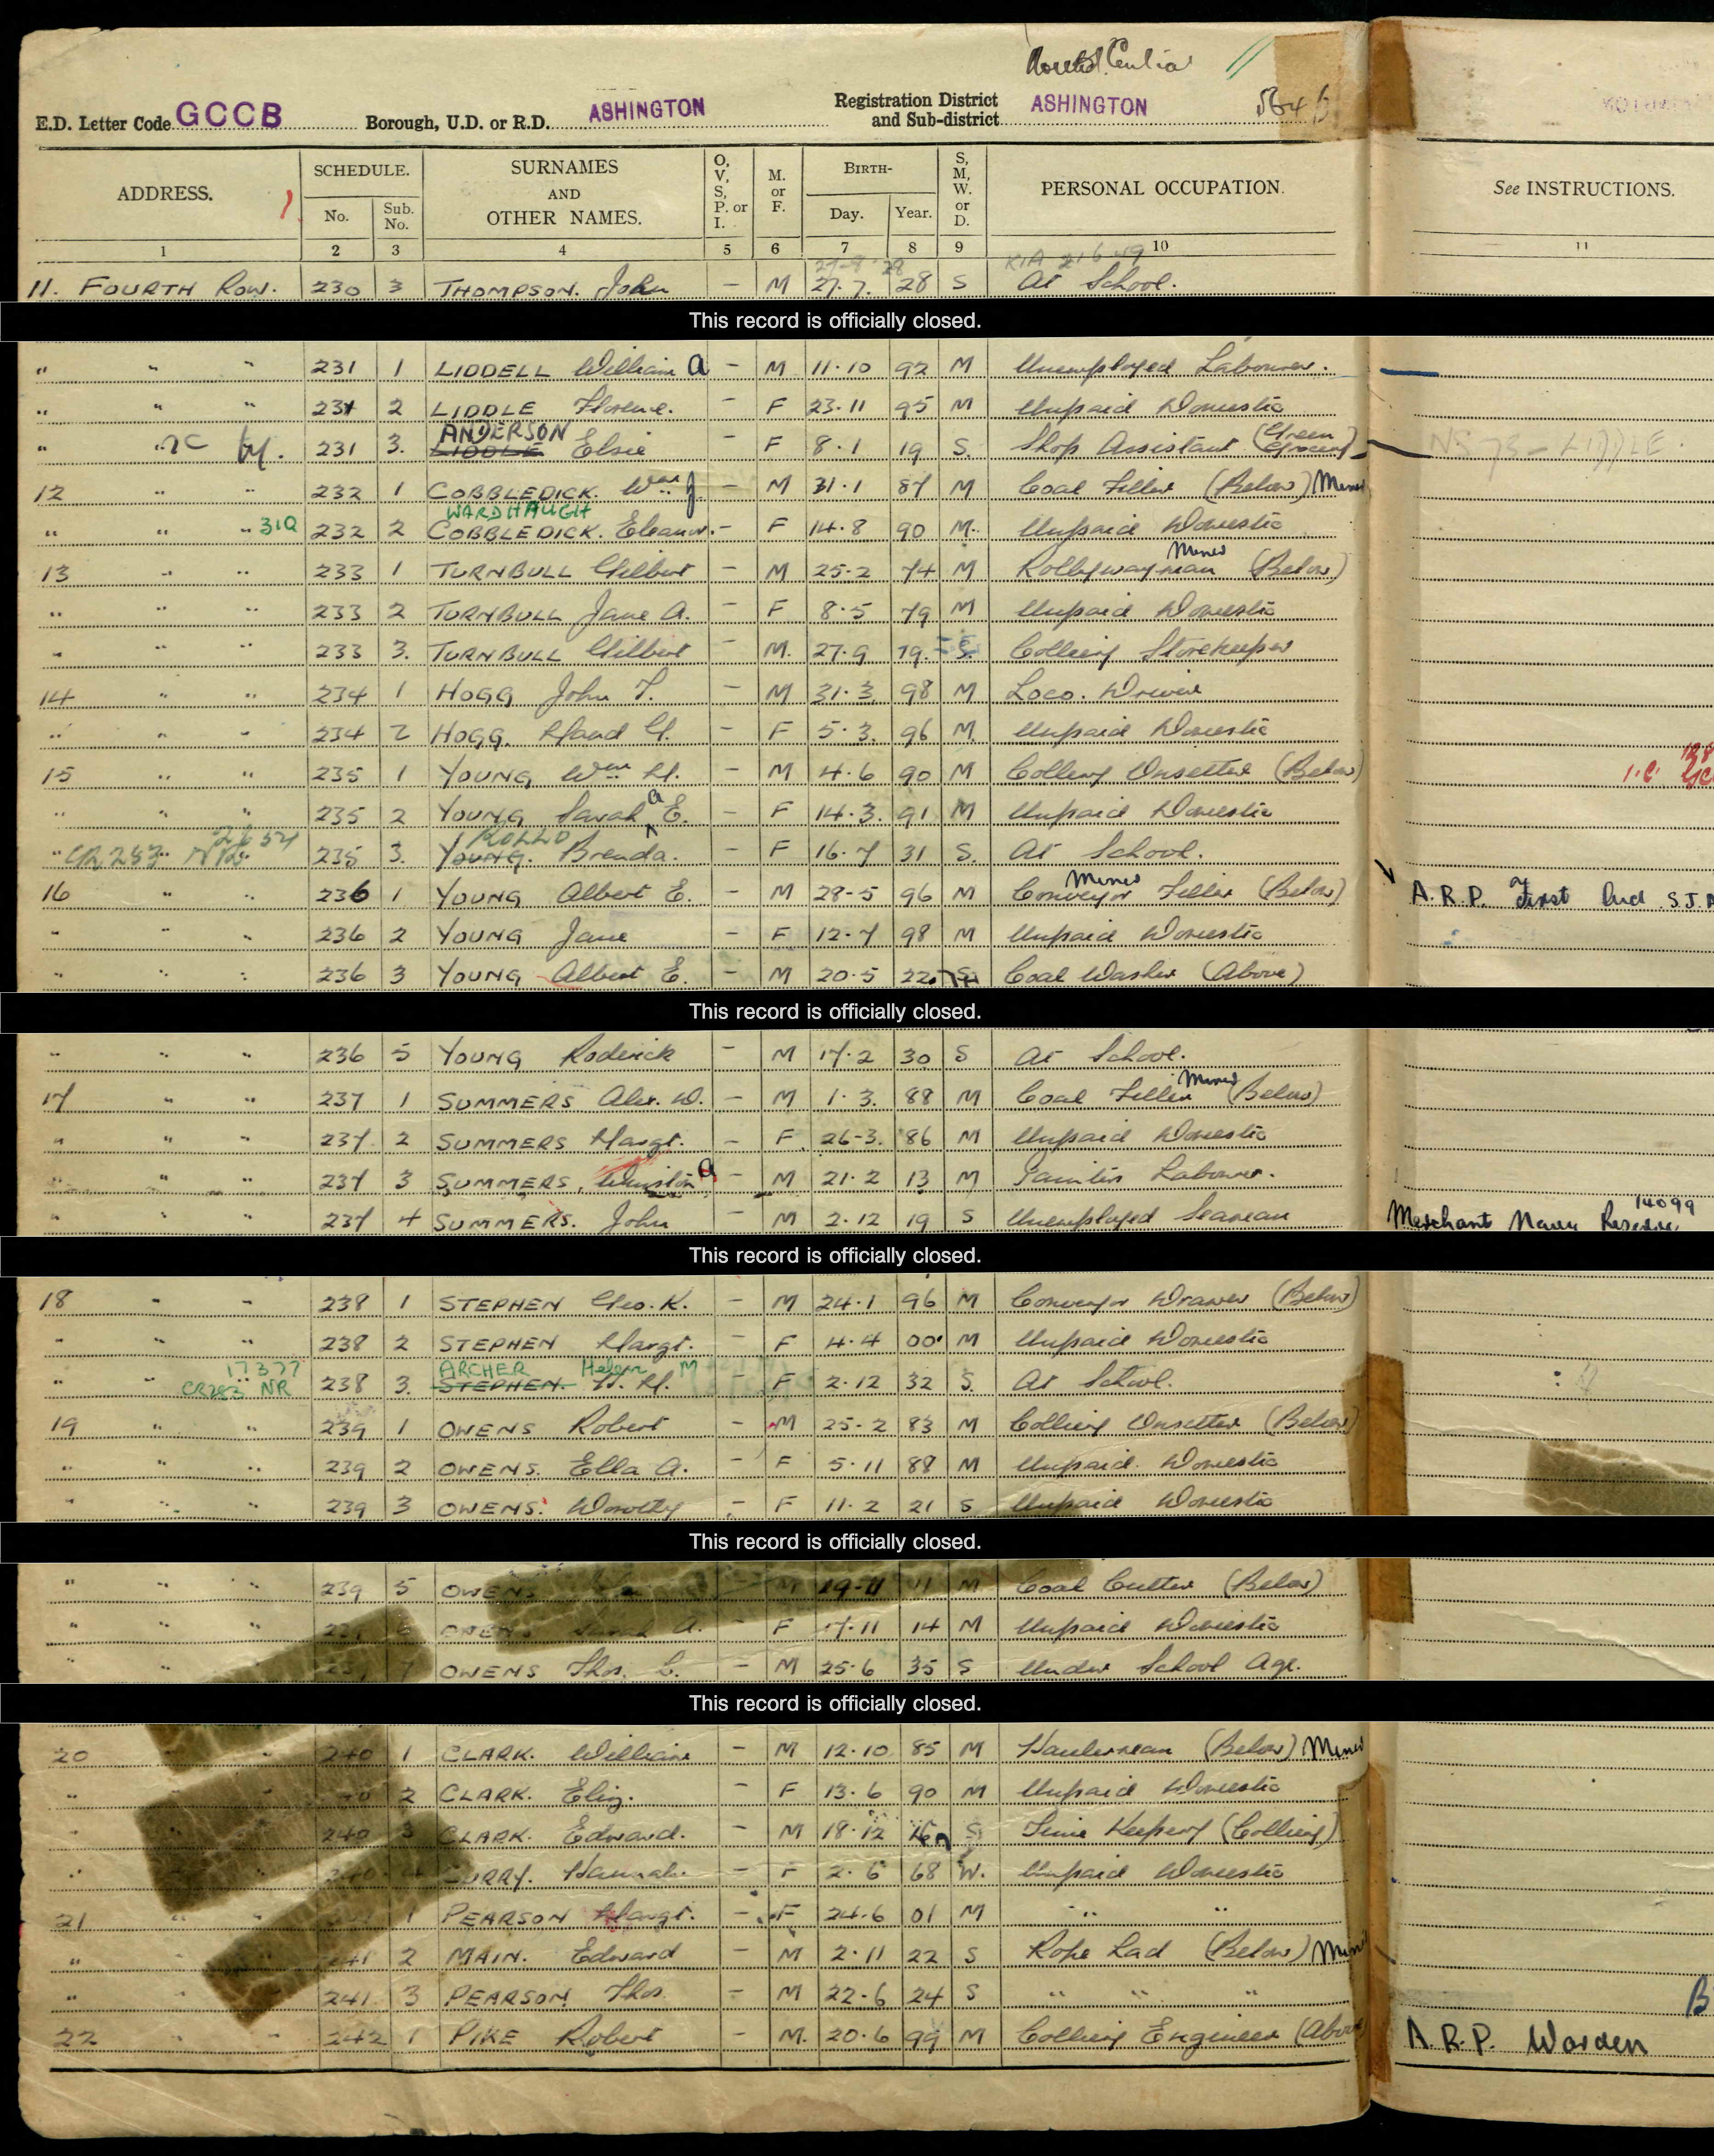 E.D. Letter Code GCCB Borough, U.D. or R.D. ASHINGTON Registration District and Sub-district ASHINGTON
ADDRESS. SCHEDULE. No. Sub. No. SURNAMES AND OTHER NAMES. O, V, S, P. or I. M. or F. BIRTH- Day. Year. S, M, W. or D. PERSONAL OCCUPATION. See INSTRUCTIONS.
1 2 3 4 5 6 7 8 9 10 11
11. FOURTH ROW. 230 3 THOMPSON. John - M 27.7. 28 S At School.
This record is officially closed.
" " " 231 1 LIDDELL William A - M 11.10 92 M Unemployed Labourer.
" " " 231 2 LIDDLE Florence. - F 23.11 95 M Unpaid Domestic
ANDERSON
" 231 3. LIDDLE Elsie - F 8.1 19 S. Shop Assistant (Green Grocery) LIDDLE
12 " " 232 1 COBBLEDICK. Wm J - M 31.1 87 M Coal Filler (Below) Miner
WARDHAUGH
" " " 31Q 232 2 COBBLEDICK. Eleanor. - F 14.8 90 M. Unpaid Domestic
Miner
13 " " 233 1 TURNBULL Gilbert - M 25.2 74 M Rolleywayman (Below)
" " " 233 2 TURNBULL Jane A. - F 8.5 79 M Unpaid Domestic
" " " 233 3. TURNBULL Gilbert - M. 27.9 19. S. Colliery Storekeeper
14 " " 234 1 HOGG John T. - M 31.3. 98 M Loco. Driver
" " " 234 2 HOGG. Maud G. - F 5.3. 96 M. Unpaid Domestic
15 " " 235 1 YOUNG Wm H. - M 4.6 90 M Colliery Onsetter (Below)
" " " 235 2 YOUNG Sarah A E. - F 14.3. 91 M Unpaid Domestic
ROLLO
" CR283 " 235 3. YOUNG. Brenda. - F 16.7 31 S. At School.
Miner
16 " " 236 1 YOUNG Albert E. - M 28-5 96 M Conveyor Filler (Below) A.R.P. First Aid S.J.A
" " " 236 2 YOUNG Jane - F 12.7 98 M Unpaid Domestic
" " " 236 3 YOUNG Albert E. - M 20.5 22 Coal Washer (Above)
This record is officially closed.
" " " 236 5 YOUNG Roderick - M 17.2 30 S At School.
Miner
17 " " 237 1 SUMMERS Alex. D. - M 1.3. 88 M Coal Filler (Below)
" " " 237 2 SUMMERS Margt. - F. 26-3. 86 M Unpaid Domestic
" " " 237 3 SUMMERS, Winston A - M 21.2 13 M Painters Labourer.
14099
" " " 237 4 SUMMERS. John - M 2.12 19 S Unemployed Seaman Merchant Navy Reserve
This record is officially closed.
18 " " 238 1 STEPHEN Geo. K. - M 24.1 96 M Conveyor Drawer (Below)
" " " 238 2 STEPHEN Margt. - F 4.4 00 M Unpaid Domestic
17377 ARCHER Helen M
" " CR283 NR 238 3. STEPHEN. H. M. - F 2.12 32 S. At School.
19 " " 239 1 OWENS Robert - M 25.2 83 M Colliery Onsetter (Below)
" " " 239 2 OWENS. Ella A. - F 5.11 88 M Unpaid. Domestic
" " " 239 3 OWENS. Dorothy - F 11.2 21 S Unpaid Domestic
This record is officially closed.
" " " 239 5 OWENS M 19-11 11 M Coal Cutter (Below)
" " " OWENS A. - F 17.11 14 M Unpaid Domestic
" " " 7 OWENS Thos. C. - M 25.6 35 S Under School Age.
This record is officially closed.
20 " " 240 1 CLARK. William - M 12.10 85 M Haulerman (Below) Miner
" " 2 CLARK. Eliz. - F 13.6 90 M Unpaid Domestic
" 240 3 CLARK. Edward. - M 18.12 16 S Time Keeper (Colliery)
" 240 4 CURRY. Hannah. - F 2.6 68 W. Unpaid Domestic
21 " " 1 PEARSON Margt. - F 24.6 01 M " "
" 241 2 MAIN. Edward - M 2.11 22 S Rope Lad (Below) Miner
" 241 3 PEARSON Thos. - M 22.6 24 S " " "
22 " " 242 1 PIKE Robert - M. 20.6 99 M Colliery Engineer (Above A.R.P. Warden